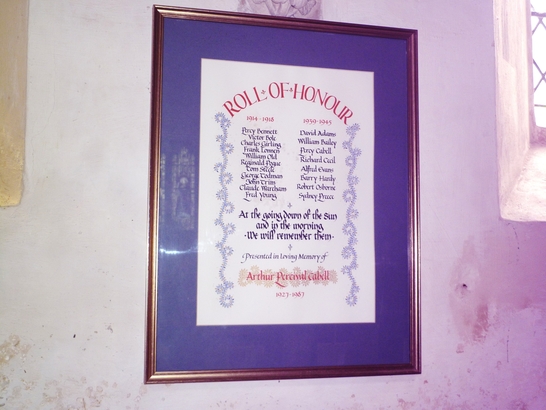 ROLL OF HONOUR
1914 - 1918
Percy Bennett
Victor Bole
Charles Girling
Frank Lonnen
William Old
Reginald Pogue
Tom Steele
George Tedman
John Trim
Claude Wareham
Fred Young
1939 - 1945
David Adams
William Bailey
Percy Cabell
Richard Cecil
Alfred Evans
Barry Hardy
Robert Osborne
Sydney Preece
At the going down of the sun
and in the morning,
We will remember them.
Presented in Loving Memory of
Arthur Percival Cabell